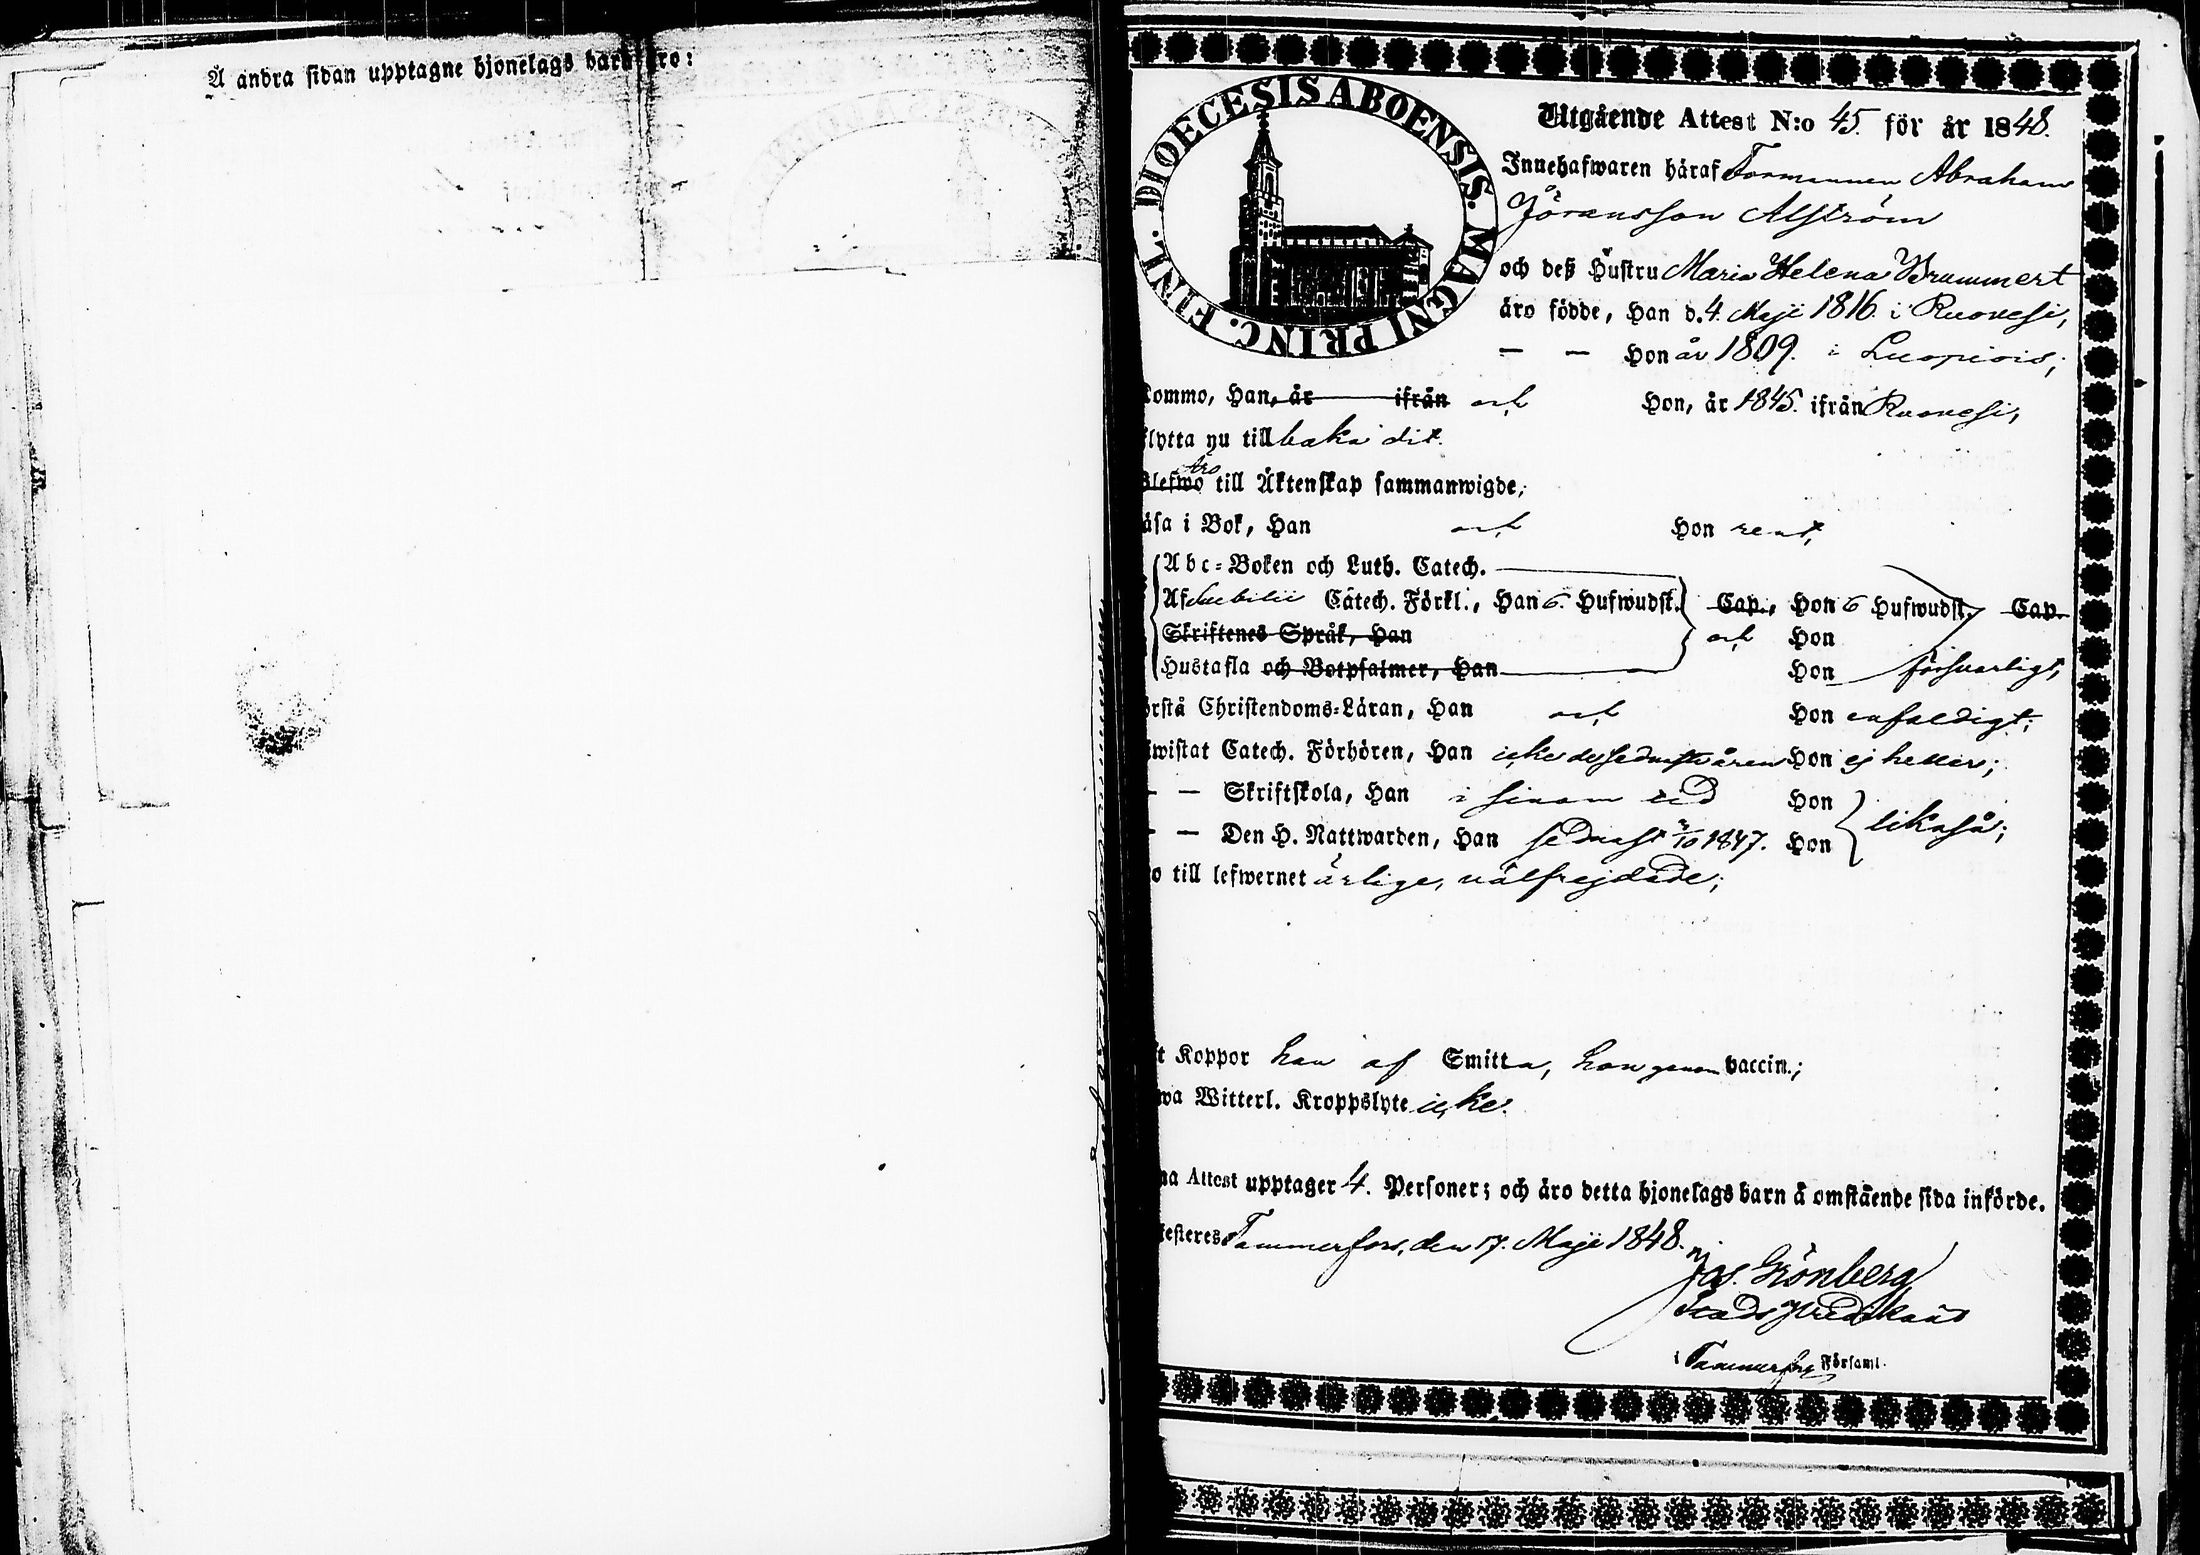 Å andra sidan upptagne hjonelags barn äro:
DIOECESIS ABOENSIS. MAGNI PRINC. FINL.
Utgående Attest N:o 45. för år 1848.
Innehafwaren häraf Formannen Abraham
Jöransson Alström
och deß Hustru Maria Helena Brummert
äro födde, Han d. 4. Maji 1816. i Ruovesi,
— — Hon år 1809. i Luopiois;
Kommo, Han, år ifrån och Hon, år 1845. ifrån Ruovesi,
flytta nu tillbaka dit.
Blefwo äro till Äktenskap sammanwigde;
läsa i Bok, Han och Hon rent,
Abc-Boken och Luth. Catech.
Af Svebilii Catech. Förkl., Han 6. Hufwudst. Cap., Hon 6 Hufwudst. Cap.
Skriftenes Språk, Han och Hon
Hustafla och Botpsalmer, Han Hon försvarligt,
örstå Christendoms-Läran, Han och Hon enfaldigt;
wistat Catech. Förhören, Han icke de sednste åren Hon ej heller;
— — Skriftskola, Han i sinom tid Hon
— — Den H. Nattwarden, Han sednast 3/10 1847. Hon likaså;
o till lefwernet ärlige, välfrejdade;
t Koppor han af Smitta, hon genom vaccin.;
wa Witterl. Kroppslyte icke.
na Attest upptager 4. Personer; och äro detta hjonelags barn å omstående sida införde.
testeres Tammerfors, den 17. Maji 1848.
Jos. Grönberg
Stads Predikant
i Tammerfors Församl.